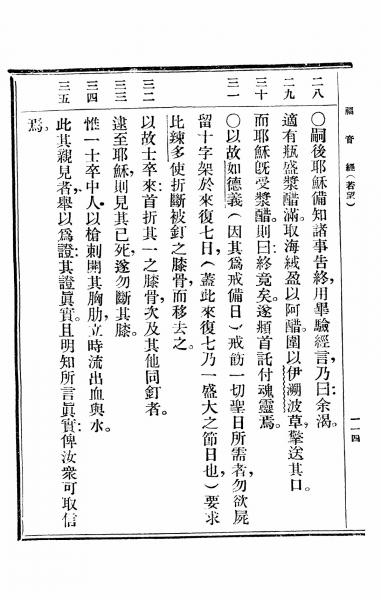 福音經(若望)
一一四
二八 〇嗣後耶穌備知諸事告終,用畢驗經言,乃曰:余渴。
二九 適有瓶盛漿醋,滿取海絨盈以阿醋,圍以伊溯波草,擎送其口。
三十 而耶穌既受漿醋,則曰:終竟矣。遂頫首託付魂靈焉。
三一 〇以故如德義(因其爲戒備日)戒飭一切聖日所需者,勿欲屍
留十字架於來復七日,(蓋此來復七乃一盛大之節日也)要求
比辣多使折斷被釘之膝骨,而移去之。
三二 以故士卒來:首折其一之膝骨,次及其他同釘者。
三三 逮至耶穌,則見其已死,遂勿斷其膝。
三四 惟一士卒中人,以槍刺開其胸肋,立時流出血與水。
三五 此其親見者,舉以爲證:其證眞實,且明知所言眞實,俾汝衆可取信
焉。